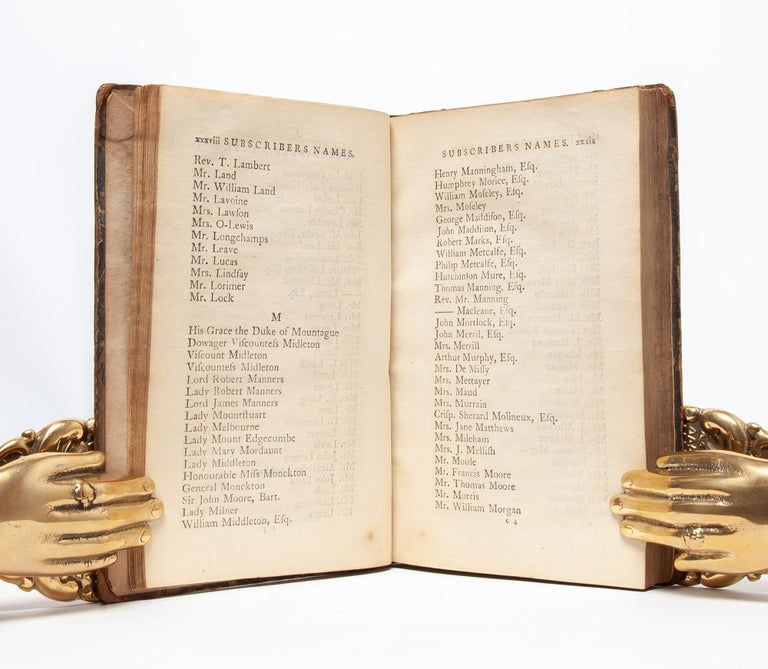 xxxviii SUBSCRIBERS NAMES.
Rev. T. Lambert
Mr. Land
Mr. William Land
Mr. Lavoine
Mrs. Lawſon
Mrs. O-Lewis
Mr. Longchamps
Mr. Leave
Mr. Lucas
Mrs. Lindſay
Mr. Lorimer
Mr. Lock
M
His Grace the Duke of Mountague
Dowager Viſcounteſs Midleton
Viſcount Midleton
Viſcounteſs Midleton
Lord Robert Manners
Lady Robert Manners
Lord James Manners
Lady Mountſtuart
Lady Melbourne
Lady Mount Edgecumbe
Lady Mary Mordaunt
Lady Middleton
Honourable Miſs Monckton
General Monckton
Sir John Moore, Bart.
Lady Milner
William Middleton, Eſq.
SUBSCRIBERS NAMES. xxxix
Henry Manningham, Eſq.
Humphrey Morice, Eſq.
William Moſeley, Eſq.
Mrs. Moſeley
George Maddiſon, Eſq.
John Maddiſon, Eſq.
Robert Marks, Eſq.
William Metcalfe, Eſq.
Philip Metcalfe, Eſq.
Hutchinſon Mure, Eſq.
Thomas Manning, Eſq.
Rev. Mr. Manning
—— Macleane, Eſq.
John Mortlock, Eſq.
John Merril, Eſq.
Mrs. Merrill
Arthur Murphy, Eſq.
Mrs. De Miſſy
Mrs. Mettayer
Mrs. Maud
Mrs. Murrain
Criſp. Sherard Molineux, Eſq.
Mrs. Jane Matthews
Mrs. Mileham
Mrs. J. Melliſh
Mr. Moule
Mr. Francis Moore
Mr. Thomas Moore
Mr. Morris
Mr. William Morgan
c 4